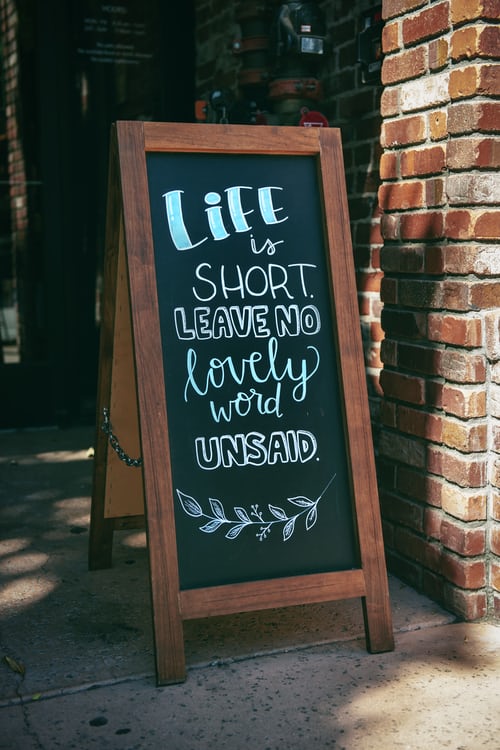 LiFE
is
SHORT.
LEAVE NO
lovely
word
UNSAID.